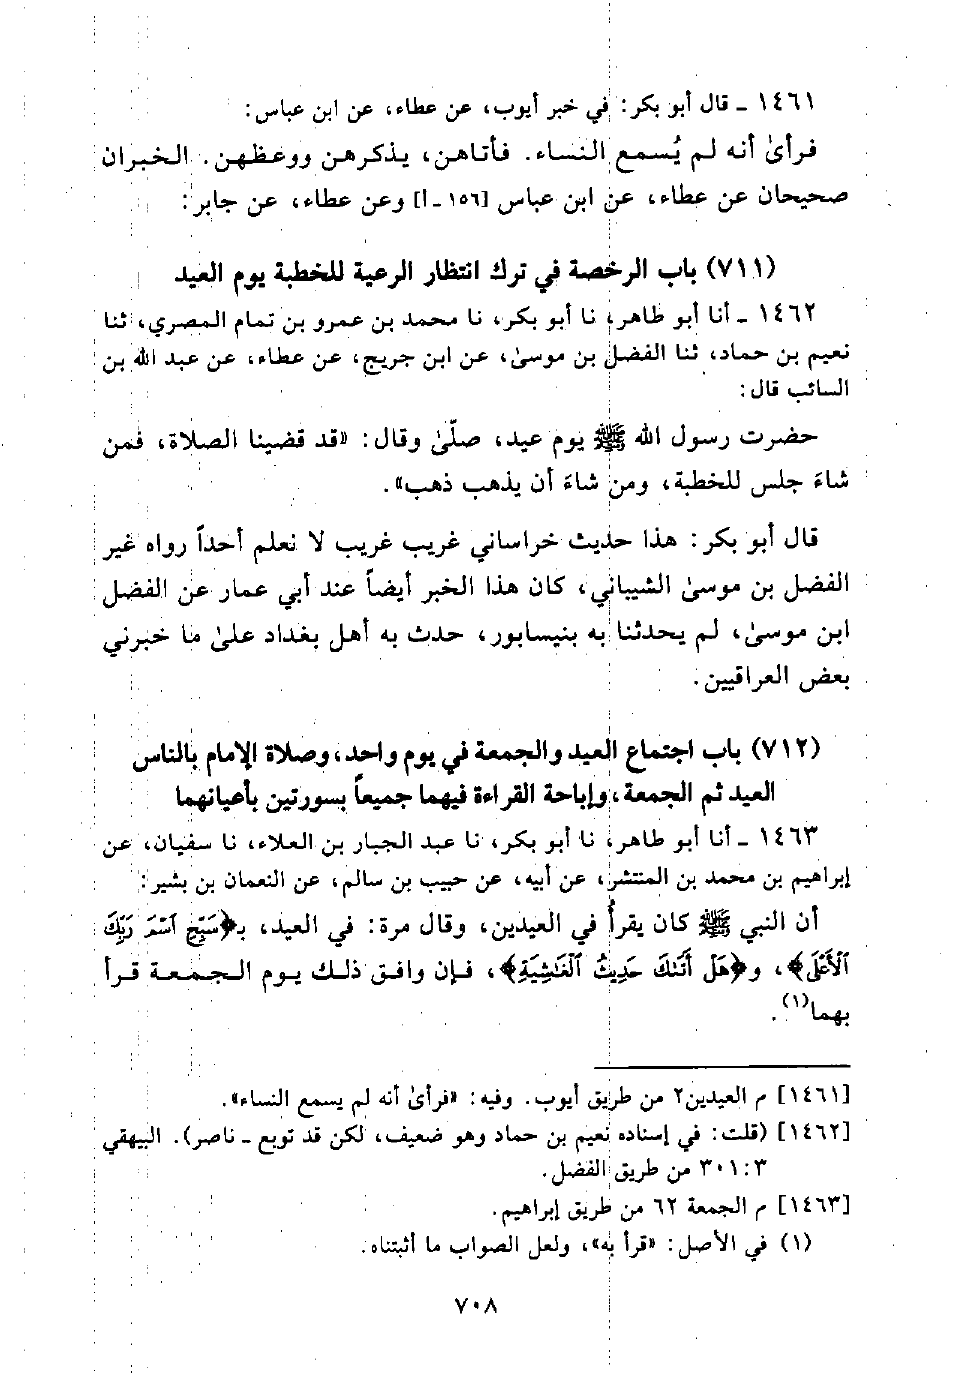 ١٤٦١ ـ قال أبو بكر: في خبر أيوب، عن عطاء، عن ابن عباس:
فرأىٰ أنه لم يُسمع النساء. فأتاهن، يذكرهن ووعظهن. الخبران
صحيحان عن عطاء، عن ابن عباس [١٥٦ ـ ا] وعن عطاء، عن جابر:
(٧١١) باب الرخصة في ترك انتظار الرعية للخطبة يوم العيد
١٤٦٢ ـ أنا أبو طاهر، نا أبو بكر، نا محمد بن عمرو بن تمام المصري، ثنا
نعيم بن حماد، ثنا الفضل بن موسىٰ، عن ابن جريج، عن عطاء، عن عبد الله بن
السائب قال:
حضرت رسول الله ﷺ يوم عيد، صلّىٰ وقال: «قد قضينا الصلاة، فمن
شاءَ جلس للخطبة، ومن شاءَ أن يذهب ذهب».
قال أبو بكر: هذا حديث خراساني غريب غريب لا نعلم أحداً رواه غير
الفضل بن موسىٰ الشيباني، كان هذا الخبر أيضاً عند أبي عمار عن الفضل
ابن موسىٰ، لم يحدثنا به بنيسابور، حدث به أهل بغداد علىٰ ما خبرني
بعض العراقيين.
(٧١٢) باب اجتماع العيد والجمعة في يوم واحد، وصلاة الإمام بالناس
العيد ثم الجمعة، وإباحة القراءة فيهما جميعاً بسورتين بأعيانهما
١٤٦٣ ـ أنا أبو طاهر، نا أبو بكر، نا عبد الجبار بن العلاء، نا سفيان، عن
إبراهيم بن محمد بن المنتشر، عن أبيه، عن حبيب بن سالم، عن النعمان بن بشير:
أن النبي ﷺ كان يقرأ في العيدين، وقال مرة: في العيد، بـ﴿سَبِّحِ ٱسْمَ رَبِّكَ
ٱلْأَعْلَى﴾، و﴿هَلْ أَتَىٰكَ حَدِيثُ ٱلْغَٰشِيَةِ﴾، فإن وافق ذلك يوم الجمعة قرأ
بهما(١).
[١٤٦١] م العيدين٢ من طريق أيوب. وفيه: «فرأىٰ أنه لم يسمع النساء».
[١٤٦٢] (قلت: في إسناده نعيم بن حماد وهو ضعيف، لكن قد توبع ـ ناصر). البيهقي
٣٠١:٣ من طريق الفضل.
[١٤٦٣] م الجمعة ٦٢ من طريق إبراهيم.
(١) في الأصل: «قرأ به»، ولعل الصواب ما أثبتناه.
٧٠٨